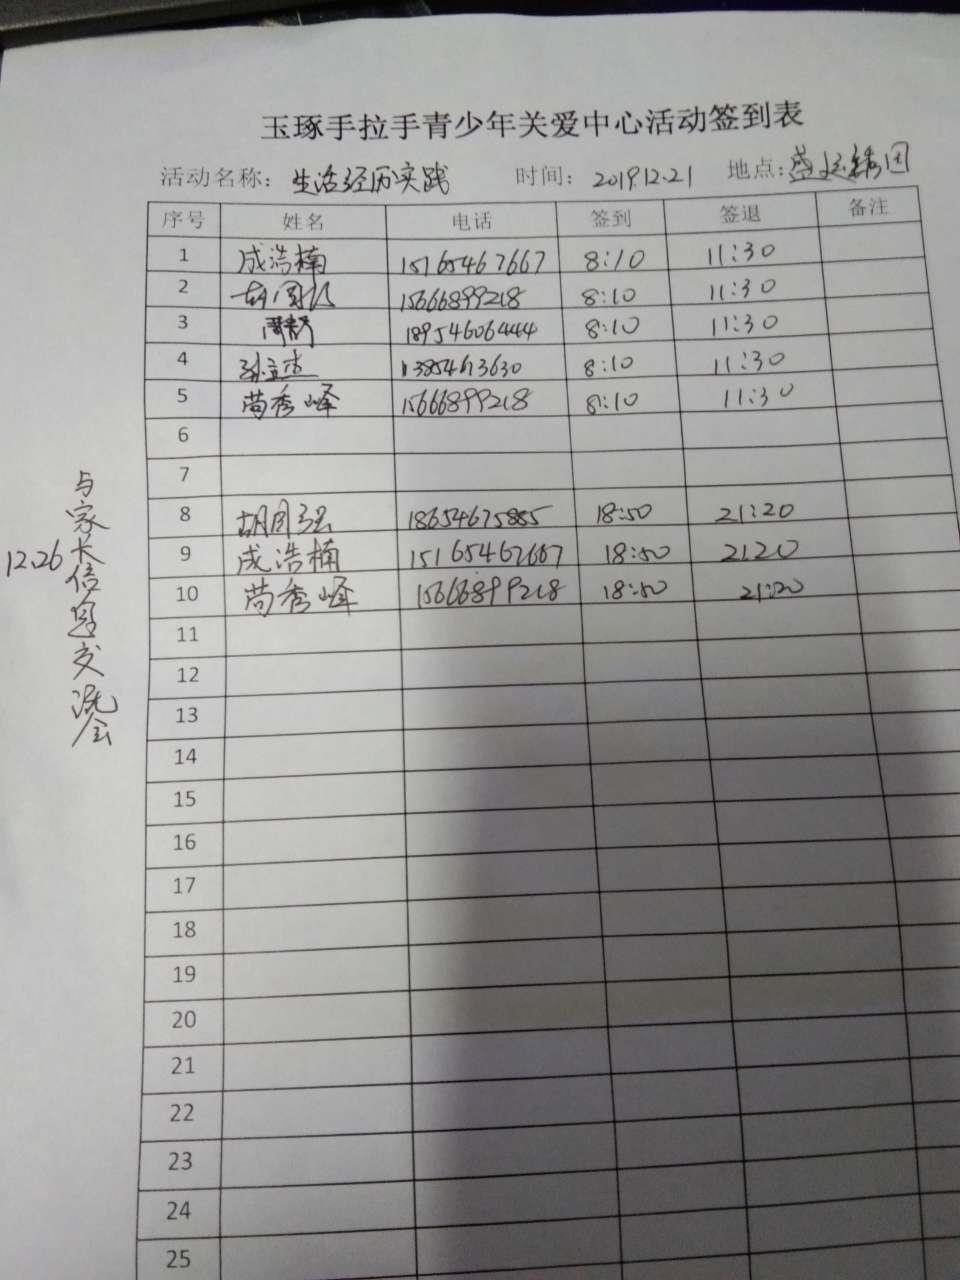 玉琢手拉手青少年关爱中心活动签到表
活动名称：生活经历实践 时间：2019.12.21 地点：
序号 姓名 电话 签到 签退 备注
1 成浩楠 15165467667 8:10 11:30
2 15666899218 8:10 11:30
3 18954606444 8:10 11:30
4 13854613630 8:10 11:30
5 苘秀峰 15666899218 8:10 11:30
6
7
8 胡同强 18654675885 18:50 21:20
9 成浩楠 15165467667 18:50 2120
10 苘秀峰 15666899218 18:50 21:20
11
12
13
14
15
16
17
18
19
20
21
22
23
24
25
12.26
与家长信息交流会